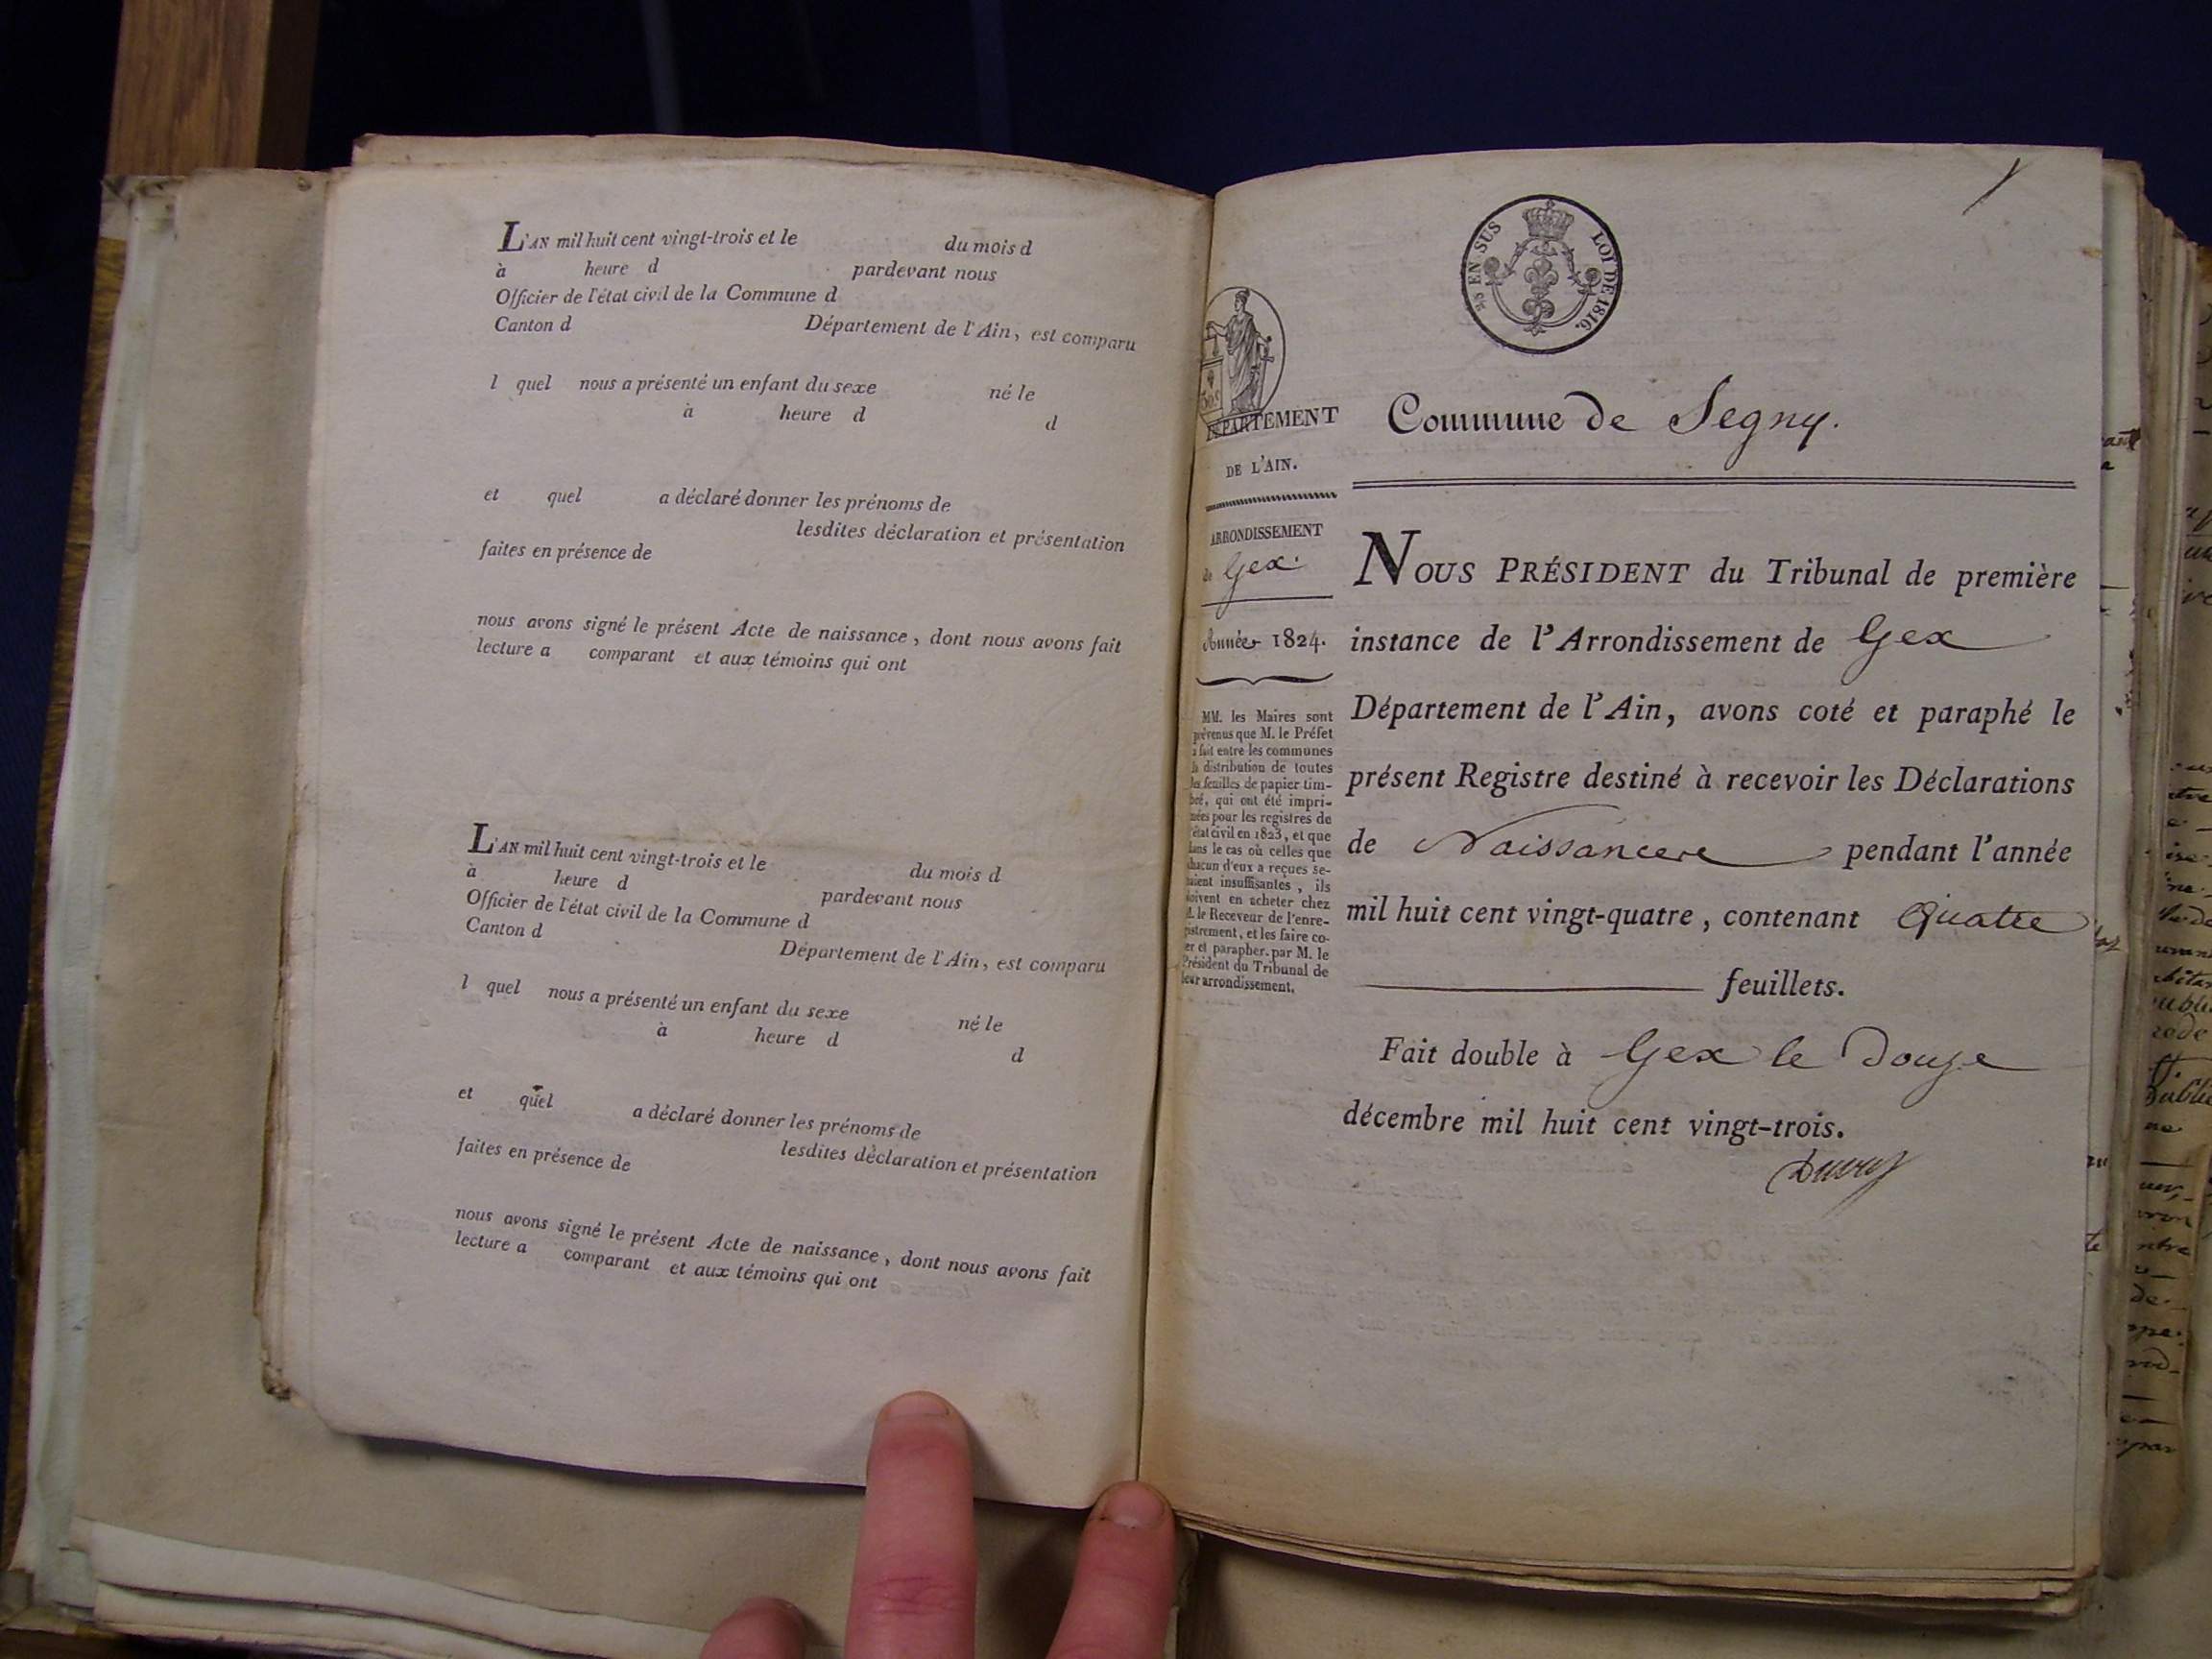 L'AN mil huit cent vingt-trois et le du mois d
à heure d pardevant nous
Officier de l'état civil de la Commune d
Canton d Département de l'Ain, est comparu
l quel nous a présenté un enfant du sexe né le
à heure d d
et quel a déclaré donner les prénoms de
lesdites déclaration et présentation
faites en présence de
nous avons signé le présent Acte de naissance, dont nous avons fait
lecture a comparant et aux témoins qui ont
L'AN mil huit cent vingt-trois et le du mois d
à heure d pardevant nous
Officier de l'état civil de la Commune d
Canton d Département de l'Ain, est comparu
l quel nous a présenté un enfant du sexe né le
à heure d d
et quel a déclaré donner les prénoms de
lesdites déclaration et présentation
faites en présence de
nous avons signé le présent Acte de naissance, dont nous avons fait
lecture a comparant et aux témoins qui ont
EN SUS LOI DE 1816.
DÉPARTEMENT
DE L'AIN.
ARRONDISSEMENT
de Gex.
Année 1824.
MM. les Maires sont
prévenus que M. le Préfet
a fait entre les communes
la distribution de toutes
les feuilles de papier tim-
bré, qui ont été impri-
mées pour les registres de
l'état civil en 1823, et que
dans le cas où celles que
chacun d'eux a reçues se-
raient insuffisantes, ils
doivent en acheter chez
M. le Receveur de l'enre-
gistrement, et les faire co-
ter et parapher par M. le
Président du Tribunal de
leur arrondissement.
Commune de Segny.
NOUS PRÉSIDENT du Tribunal de première
instance de l'Arrondissement de Gex
Département de l'Ain, avons coté et paraphé le
présent Registre destiné à recevoir les Déclarations
de Naissances pendant l'année
mil huit cent vingt-quatre, contenant Quatre
feuillets.
Fait double à Gex le Douze
décembre mil huit cent vingt-trois.